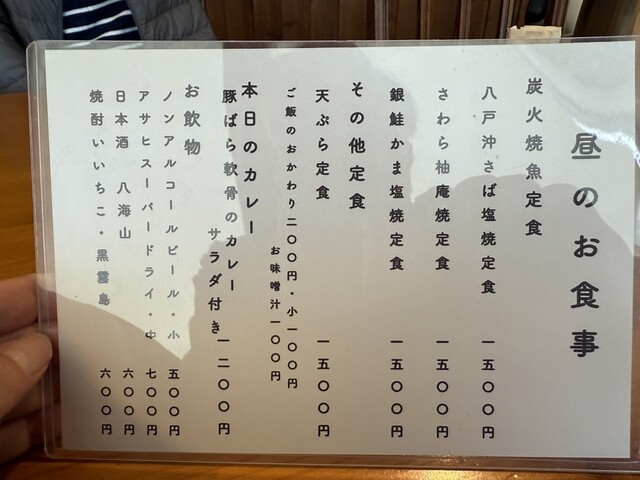 昼のお食事
炭火焼魚定食
八戸沖さば塩焼定食 一五〇〇円
さわら柚庵焼定食 一五〇〇円
銀鮭かま塩焼定食 一五〇〇円
その他定食
天ぷら定食 一五〇〇円
ご飯のおかわり二〇〇円・小一〇〇円
お味噌汁一〇〇円
本日のカレー
豚ばら軟骨のカレー
サラダ付き 一二〇〇円
お飲物
ノンアルコールビール・小 五〇〇円
アサヒスーパードライ・中 七〇〇円
日本酒 八海山 六〇〇円
焼酎いいちこ・黒霧島 六〇〇円